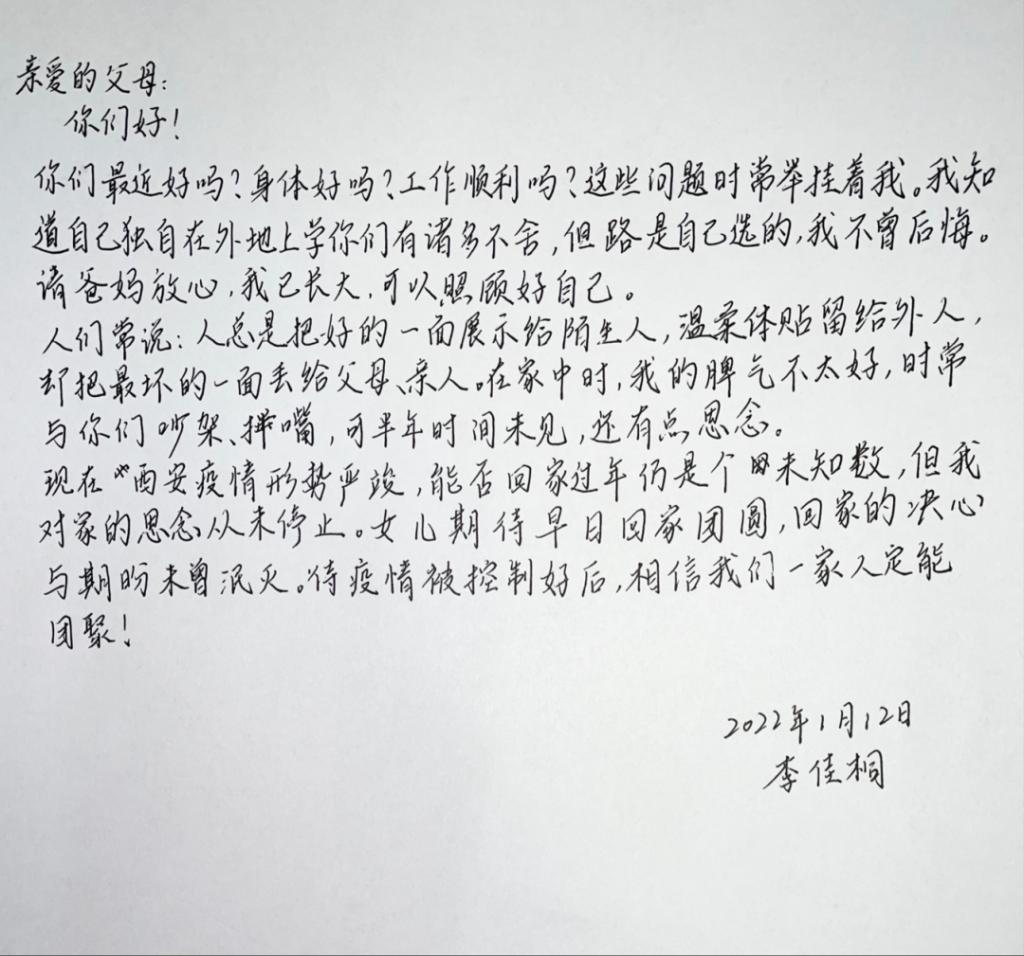 亲爱的父母：
你们好！
你们最近好吗？身体好吗？工作顺利吗？这些问题时常举挂着我。我知
道自己独自在外地上学你们有诸多不舍，但路是自己选的，我不曾后悔。
请爸妈放心，我已长大，可以照顾好自己。
人们常说：人总是把好的一面展示给陌生人，温柔体贴留给外人，
却把最坏的一面丢给父母、亲人。在家中时，我的脾气不太好，时常
与你们吵架、拌嘴，可半年时间未见，还有点思念。
现在西安疫情形势严竣，能否回家过年仍是个未知数，但我
对家的思念从未停止。女儿期待早日回家团圆，回家的决心
与期盼未曾泯灭。待疫情被控制好后，相信我们一家人定能
团聚！
2022年1月12日
李佳桐